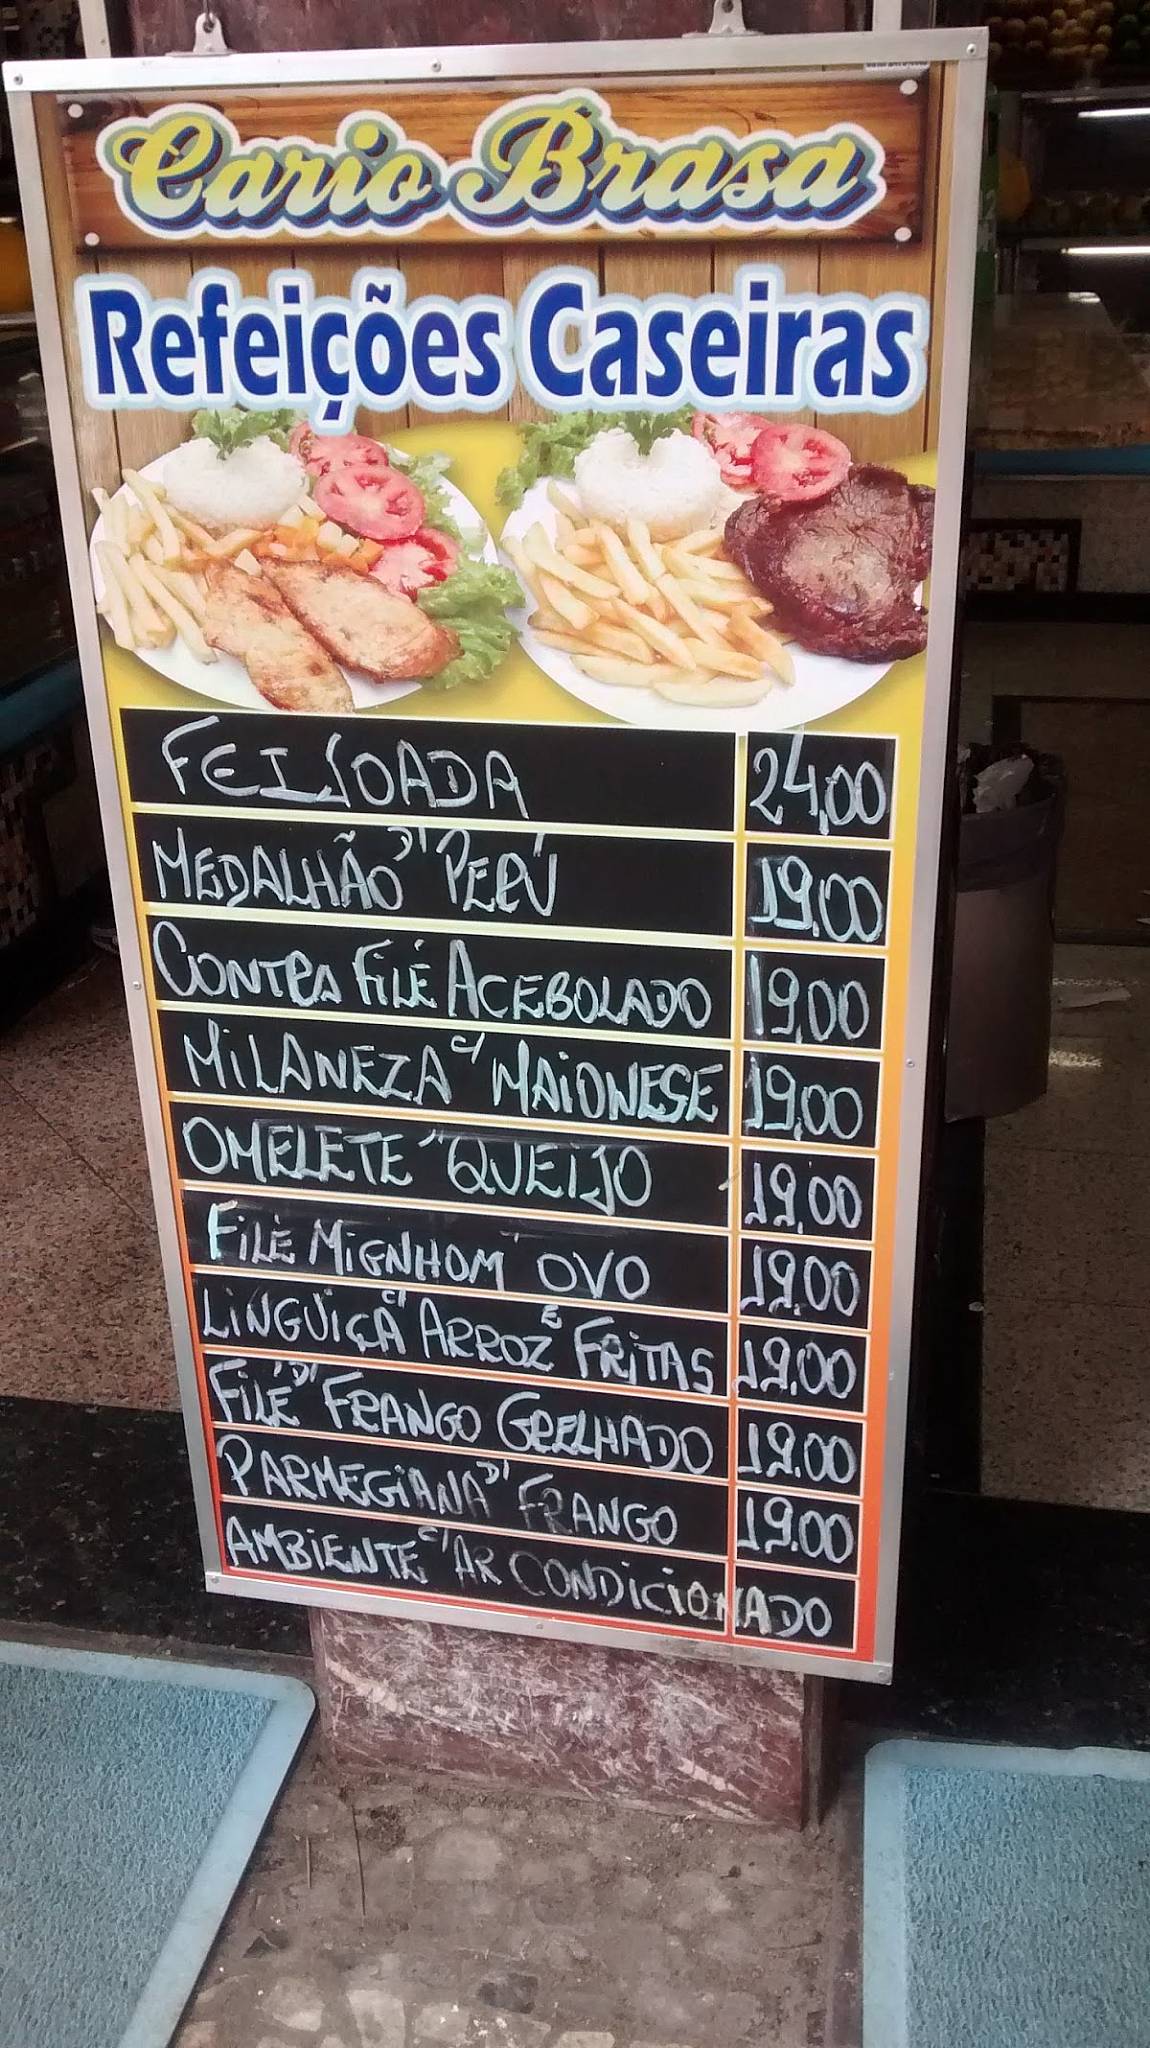 Cario Brasa
Refeições Caseiras
FEIJOADA 24,00
MEDALHÃO D' PERÚ 19,00
CONTRA FILÉ ACEBOLADO 19,00
MILANEZA C/ MAIONESE 19,00
OMELETE D' QUEIJO 19,00
FILÉ MIGNHOM OVO 19,00
LINGUIÇA C/ ARROZ E FRITAS 19,00
FILÉ D' FRANGO GRELHADO 19,00
PARMEGIANA D' FRANGO 19,00
AMBIENTE C/ AR CONDICIONADO